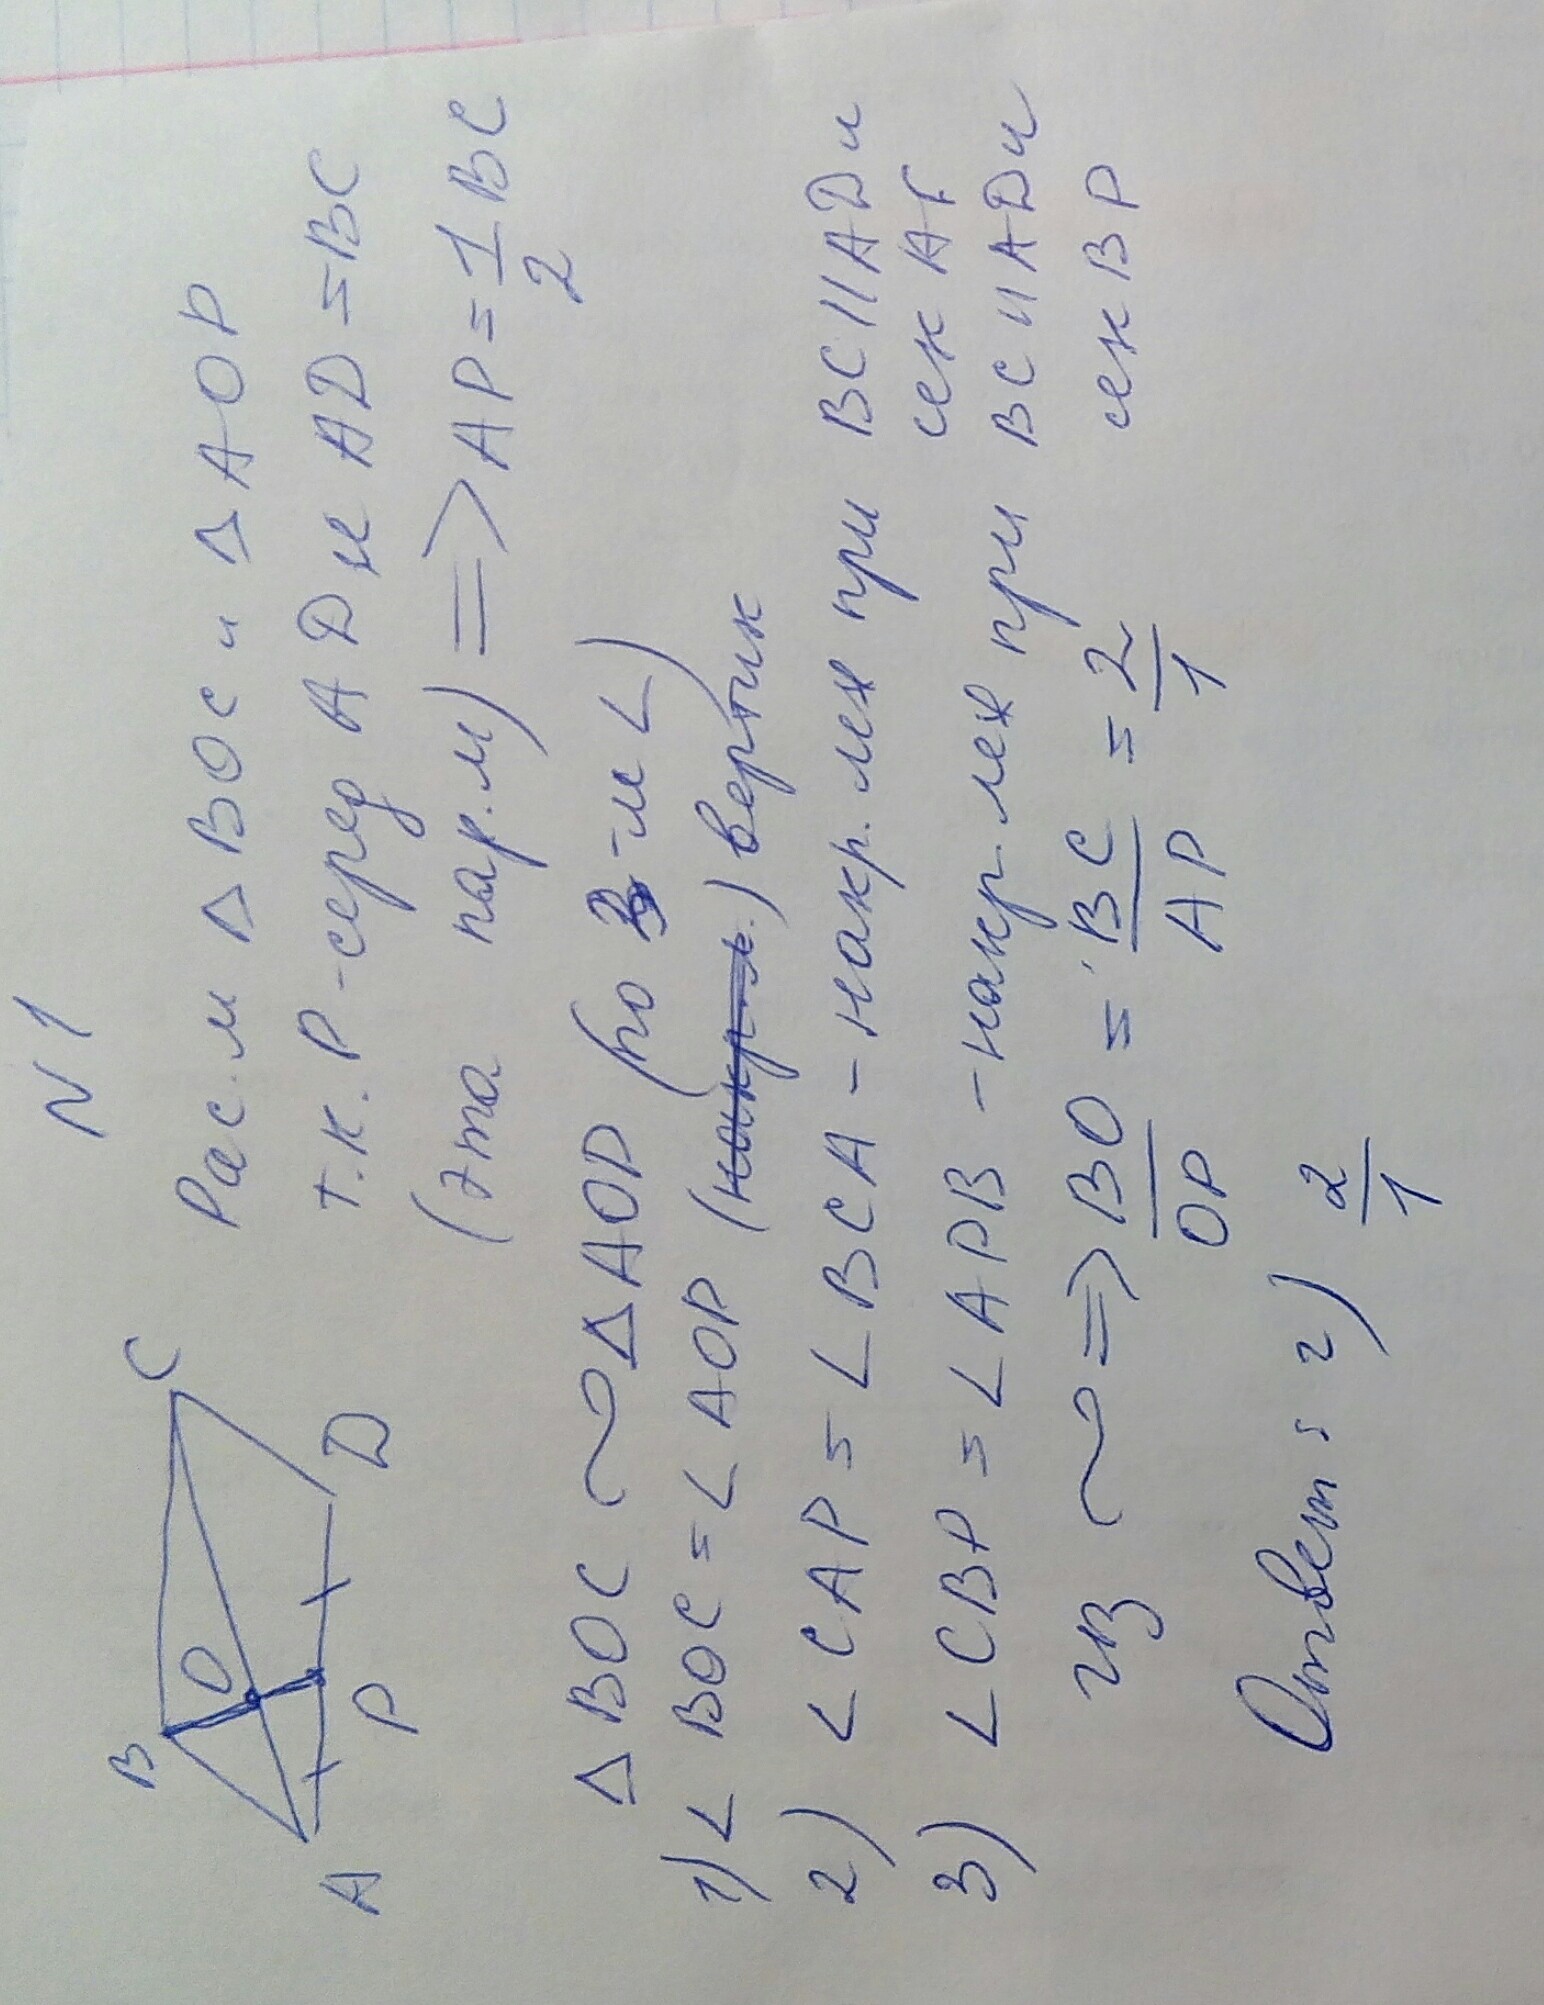 N 1
B
C
O
A
P
D
Рас.м Δ BOC и Δ AOP
т.к. P -серед AD и AD = BC
(это пар.м) => AP = 1/2 BC
Δ BOC ~ Δ AOP (по 3-м ∠)
1) ∠ BOC = ∠ AOP (накр. л.) вертик
2) ∠ CAP = ∠ BCA - накр. леж при BC II AD и
сек AC
3) ∠ CBP = ∠ APB - накр. леж при BC и AD и
сек BP
из ~ => BO/OP = BC/AP = 2/1
Ответ: 2) 2/1